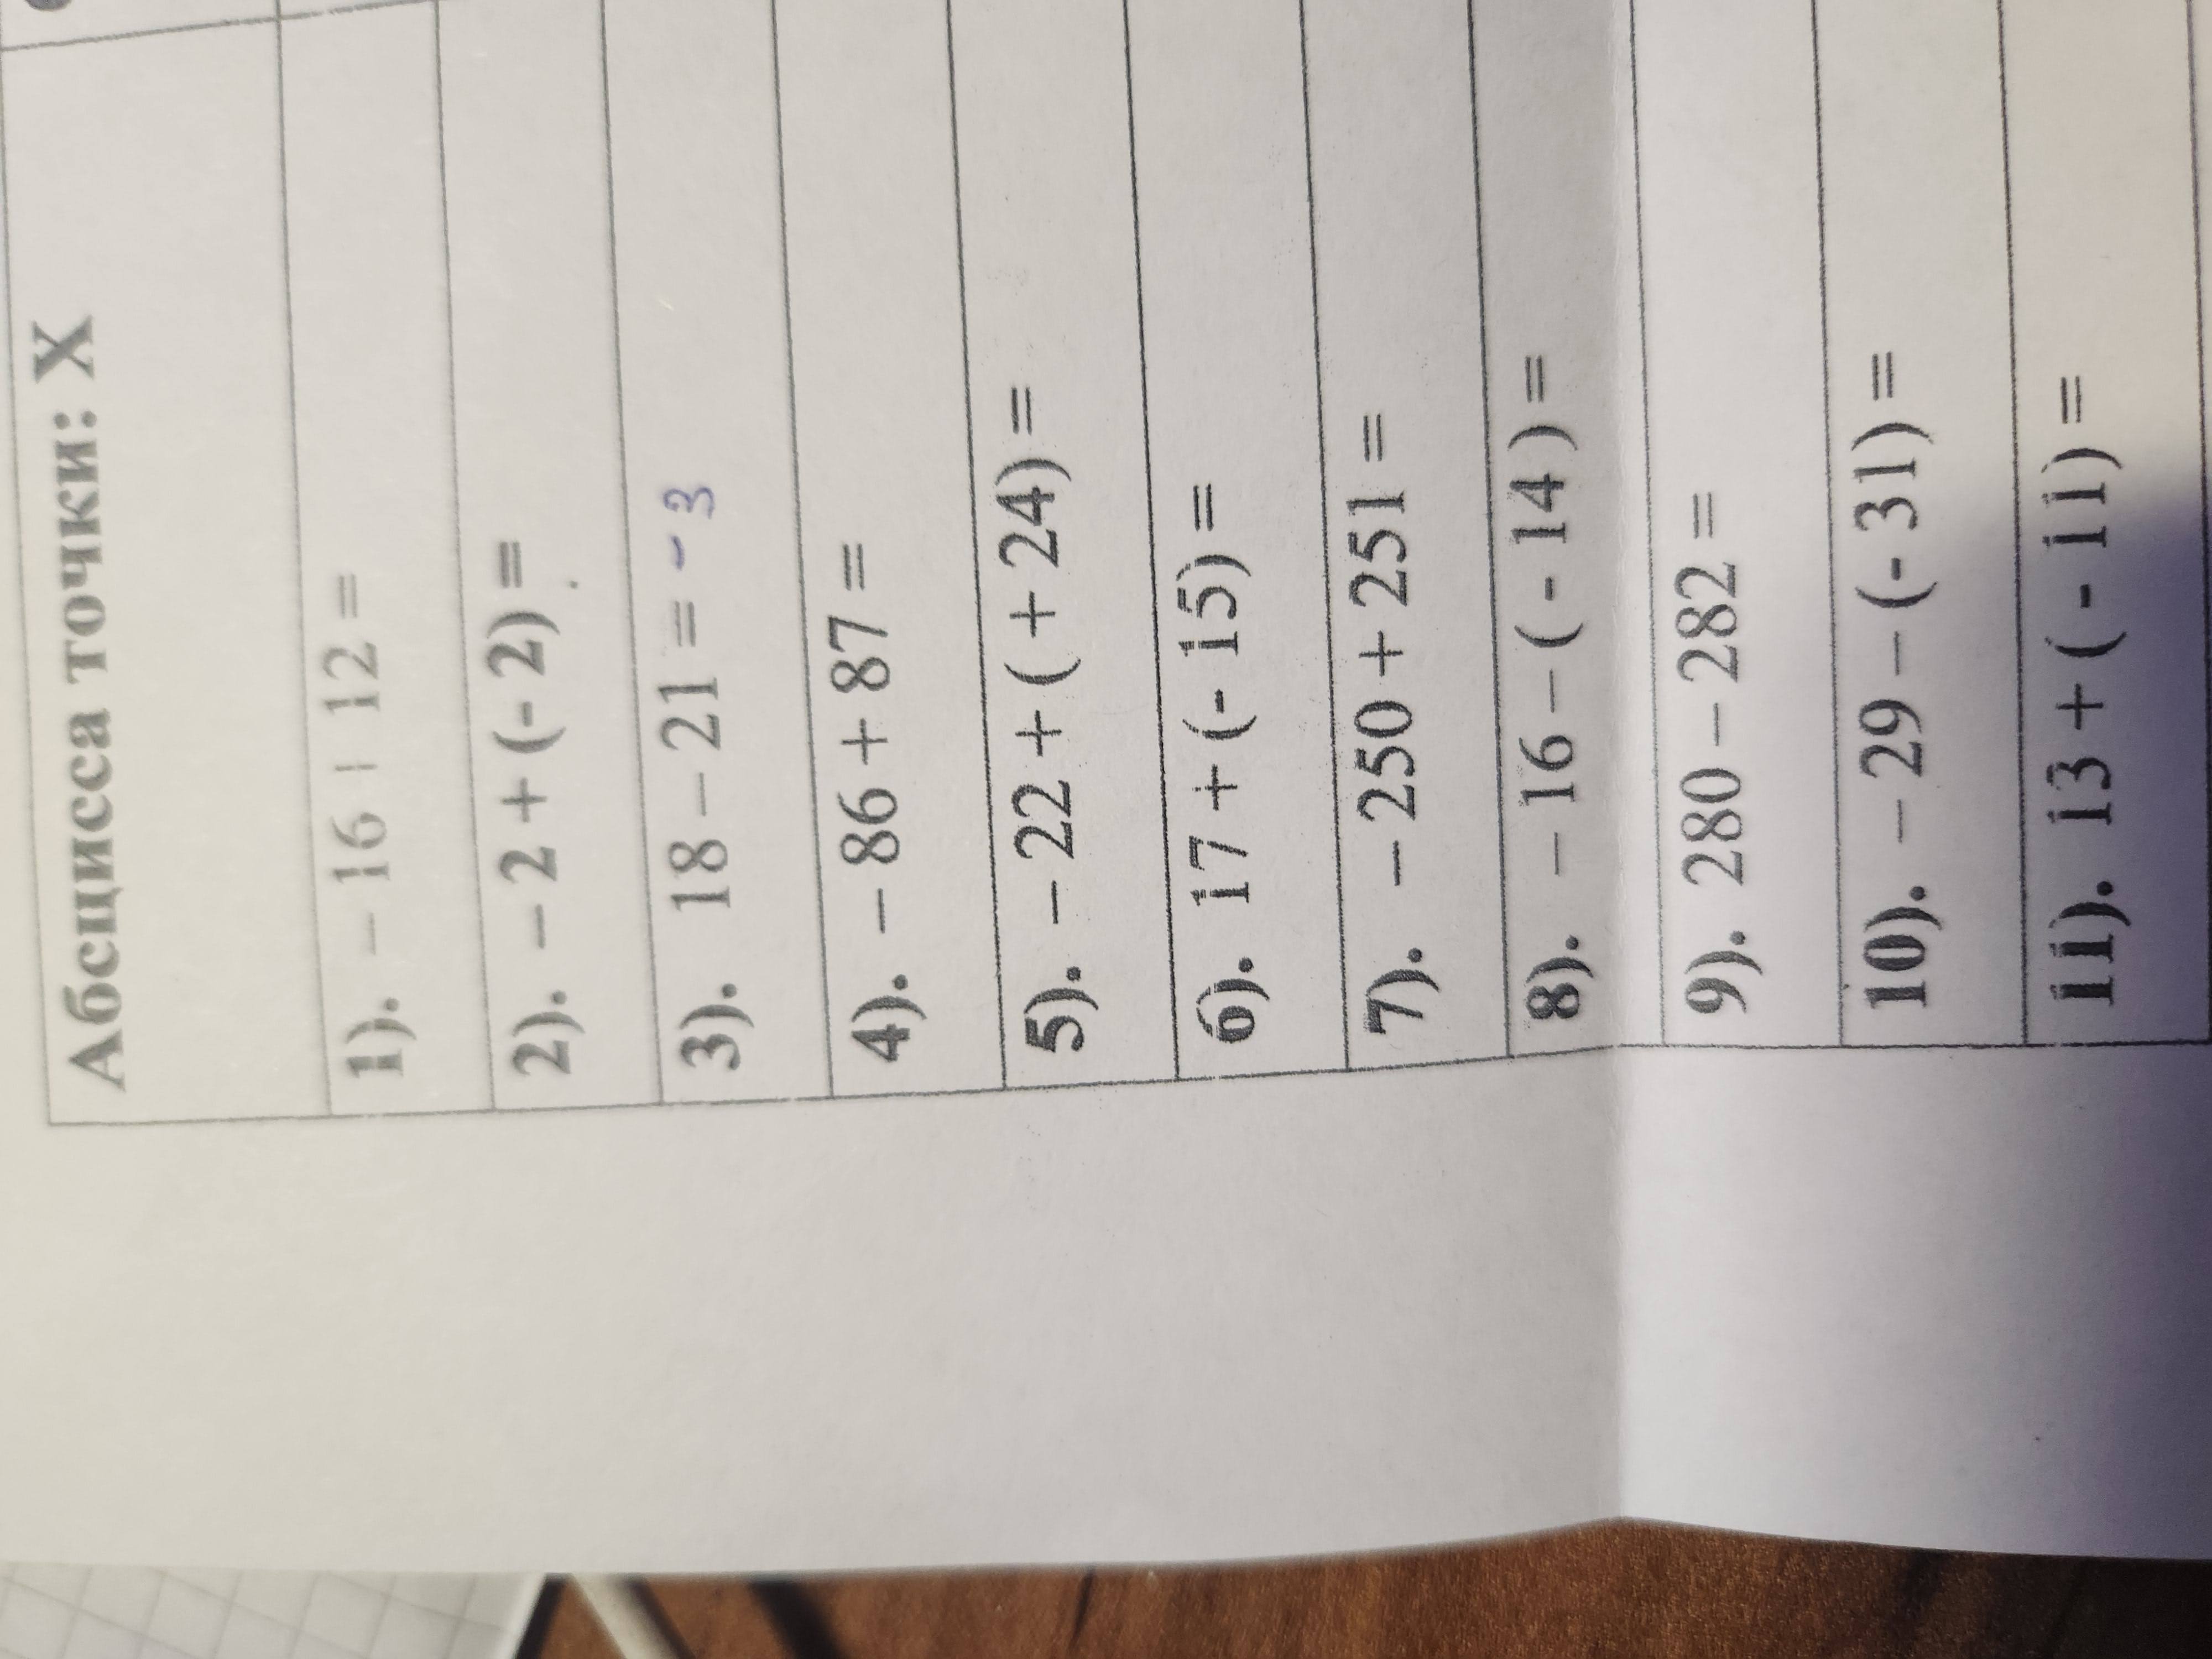 Абсцисса точки: X
1). – 16 + 12 =
2). – 2 + (- 2) =
3). 18 – 21 = - 3
4). – 86 + 87 =
5). – 22 + ( + 24) =
6). 17 + (- 15) =
7). – 250 + 251 =
8). – 16 – ( - 14 ) =
9). 280 – 282 =
10). – 29 – (- 31) =
11). 13 + ( - 11) =